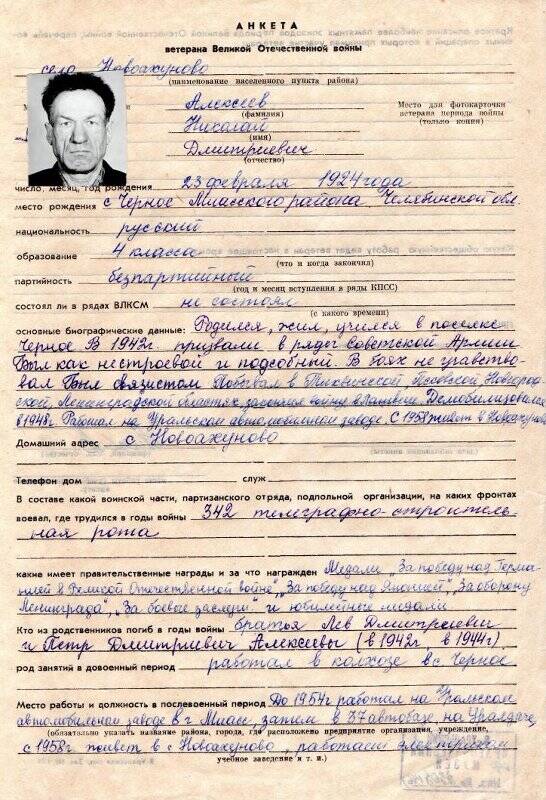 АНКЕТА
ветерана Великой Отечественной войны
село Новоахуново
(наименование населенного пункта района)
Алексеев
(фамилия)
Николай
(имя)
Дмитриевич
(отчество)
Место для фотокарточки
ветерана периода войны
(только копия)
число, месяц, год рождения 23 февраля 1924 года
место рождения с Черное Миасского района Челябинской обл.
национальность русский
образование 4 класса
(что и когда закончил)
партийность безпартийный
(год и месяц вступления в ряды КПСС)
состоял ли в рядах ВЛКСМ не состоял
(с какого времени)
основные биографические данные: Родился, жил, учился в поселке
Черное В 1942г. призвали в ряды Советской Армии
Был как нестроевой и подсобный. В боях не участво-
вал Был связистом Побывал в Псковской Новгород-
ской, Ленинградской областях, закончил войну в Латвии. Демобилизовался
в 1948г. Работал на Уральском автомобильном заводе. С 1958 живет в Новоахуново
Домашний адрес с Новоахуново
Телефон дом служ
В составе какой воинской части, партизанского отряда, подпольной организации, на каких фронтах
воевал, где трудился в годы войны 342 телеграфно-строитель-
ная рота
какие имеет правительственные награды и за что награжден Медали „За победу над Герма-
нией в Великой Отечественной войне", „За победу над Японией", „За оборону
Ленинграда", „За боевые заслуги" и юбилейные медали
Кто из родственников погиб в годы войны братья Лев Дмитриевич
и Петр Дмитриевич Алексеевы (в 1942г в 1944г).
род занятий в довоенный период работал в колхозе в с. Черное
Место работы и должность в послевоенный период До 1954г работал на Уральском
автомобильном заводе в г Миасс, затем в 37 автобазе, на Уралдаче,
(обязательно указать название района, города, где расположено предприятие организация, учреждение,
с 1958г живет в с Новоахуново, работал электриком
учебное заведение и т. п.)